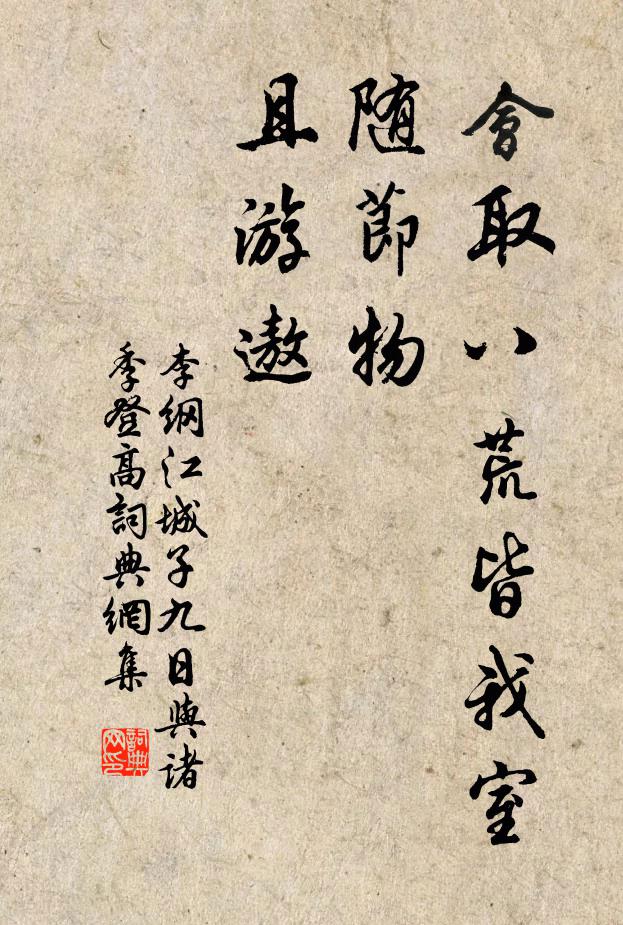 會取八荒皆我室
随節物
且游遨
李綱江城子九日與諸
季登高詞典網集
詞典
网印